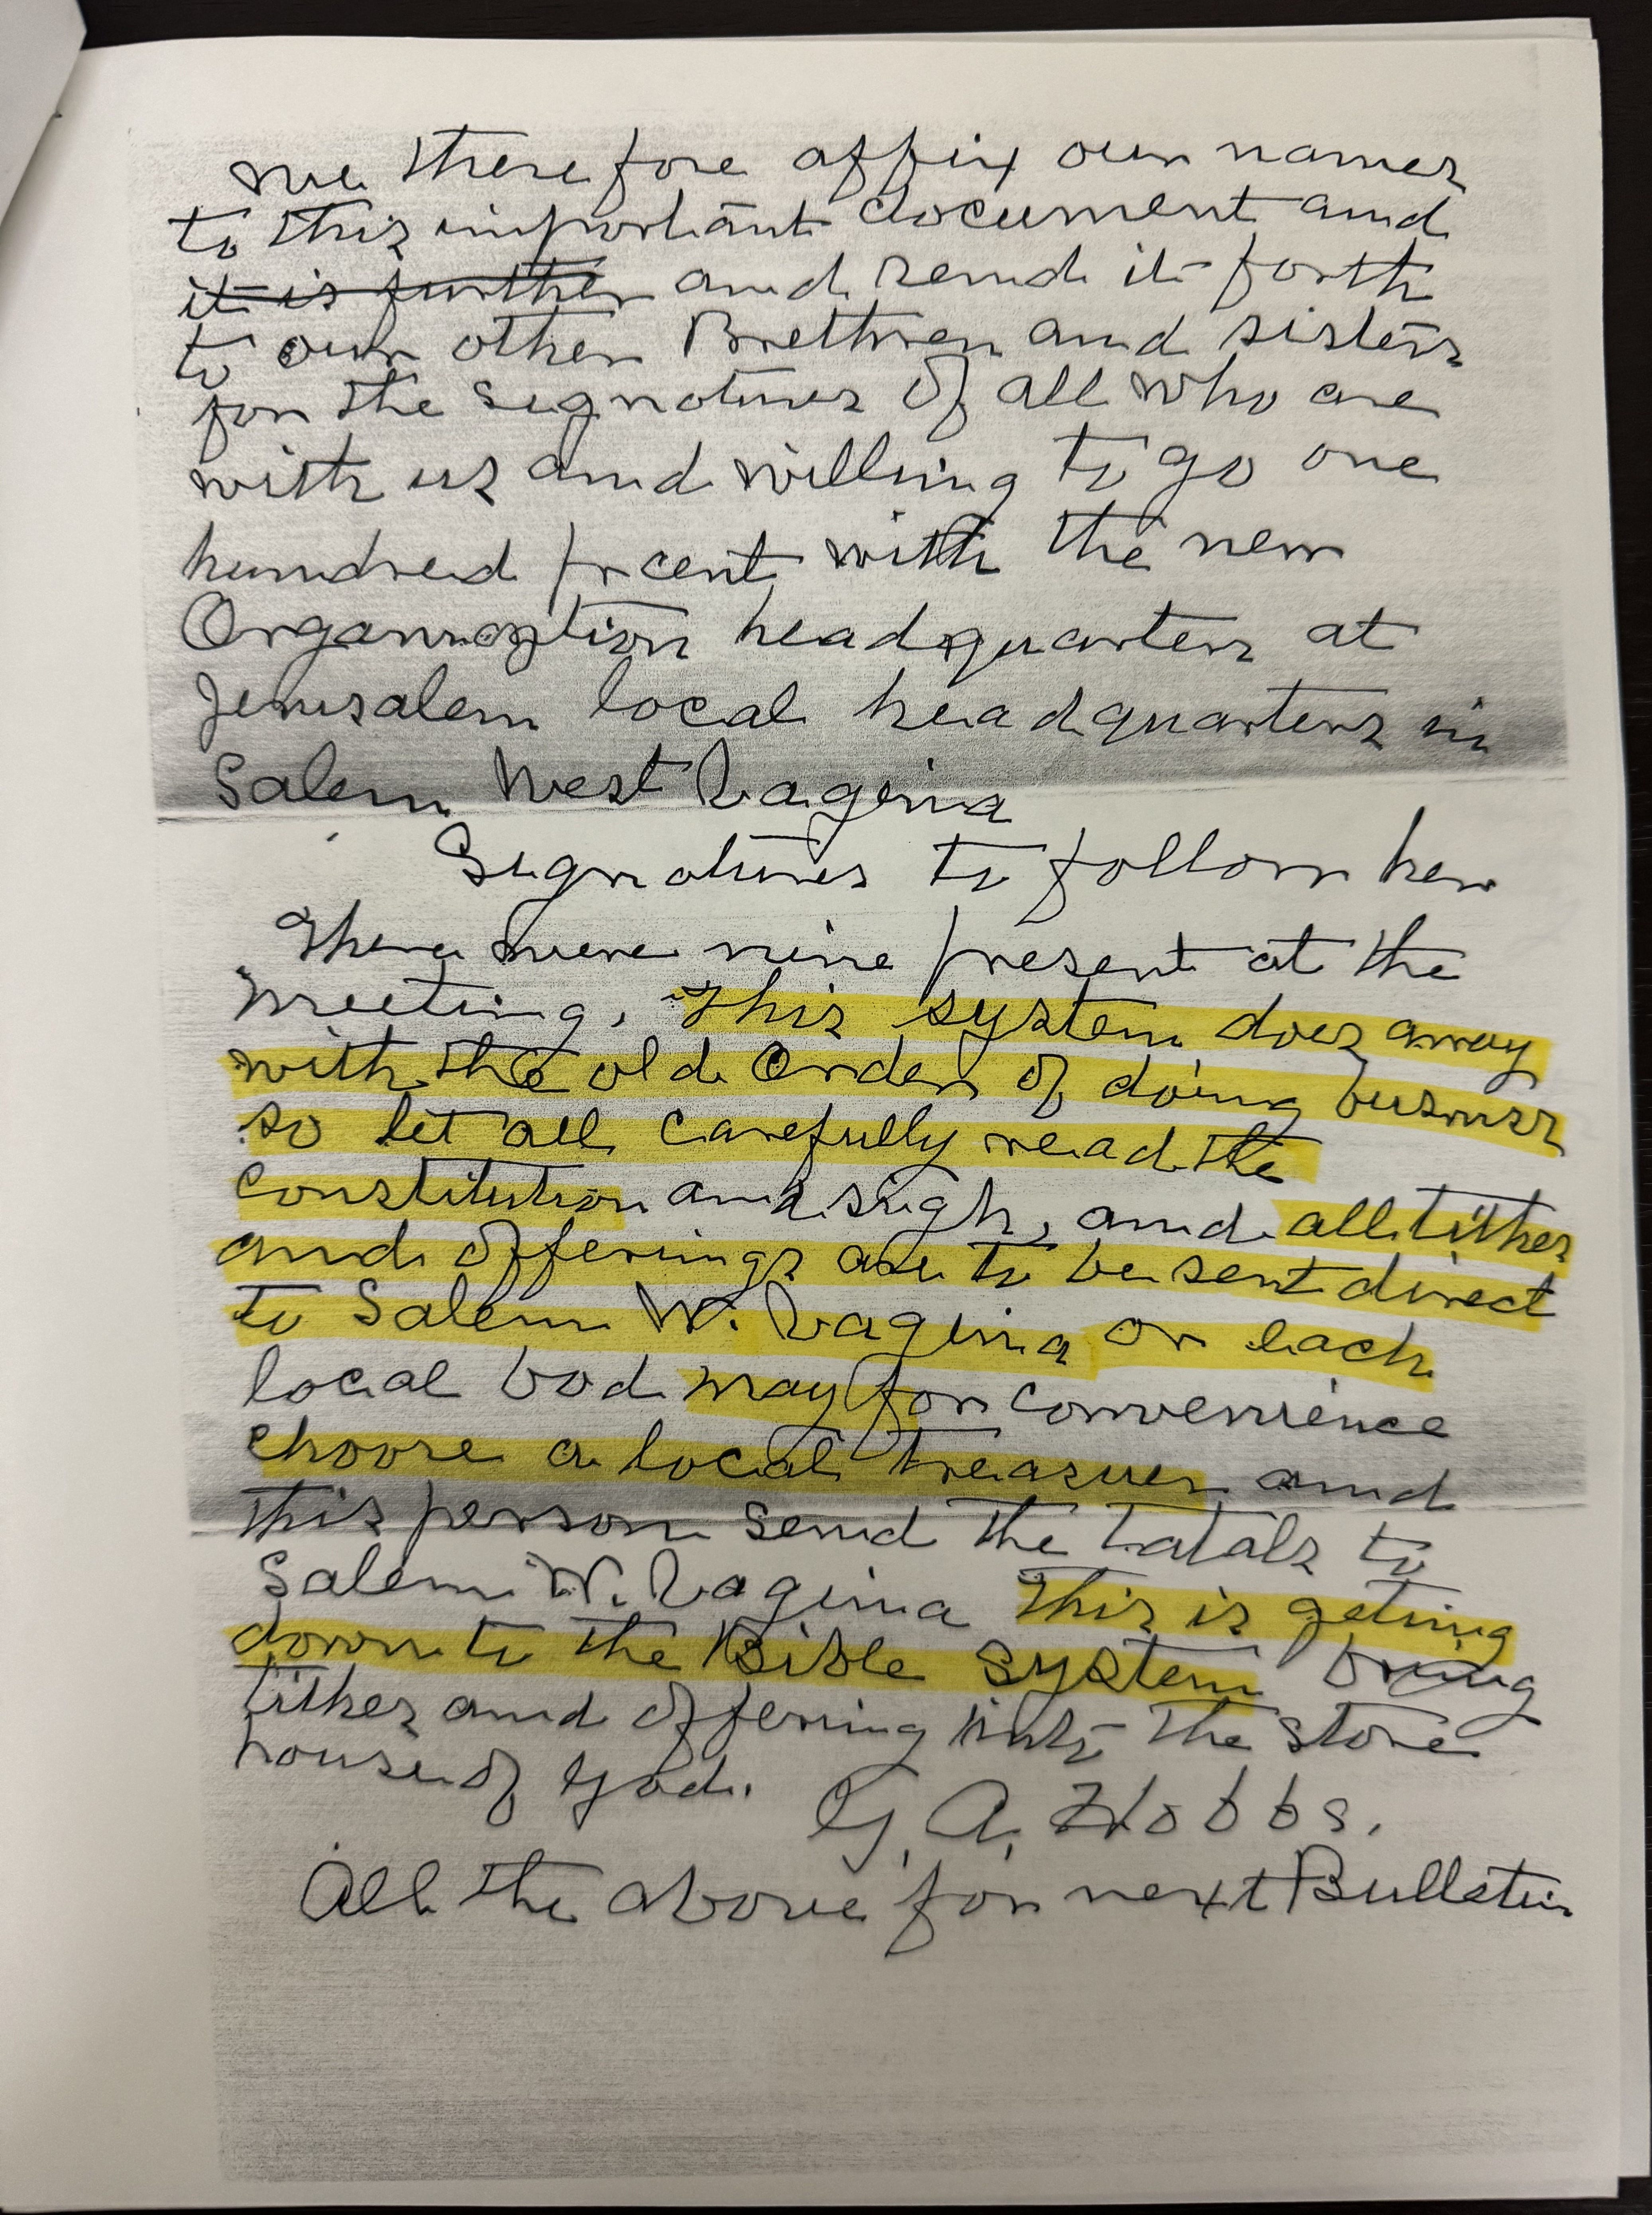 we therefore affix our names
to this important document and
it is further and send it forth
to our other Brethren and sisters
for the signatures of all who are
with us and willing to go one
hundred prcent with the new
Organization headquarters at
Jerusalem local headquarters in
Salem West Vaginia
Signatures to follow her
There were nine present at the
meeting. This system does away
with the old Order of doing business
so let all carefully read the
Constitution and sigh, and all tithes
and offerings are to be sent direct
to Salem W. Vaginia or each
local bod may for convenience
choose a local treasuer and
this person send the totals to
Salem W. Vaginia This is geting
down to the Bible system bring
tithes and offering into the store
house of God.
G. A. Hobbs.
All the above for next Bulletin